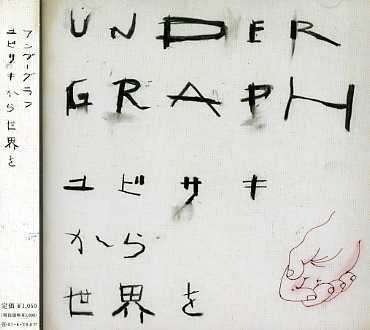 アンダーグラフ
ユビサキから世界を
定価 ¥1,050
UNDER
GRAPH
ユビサキ
から
世界を